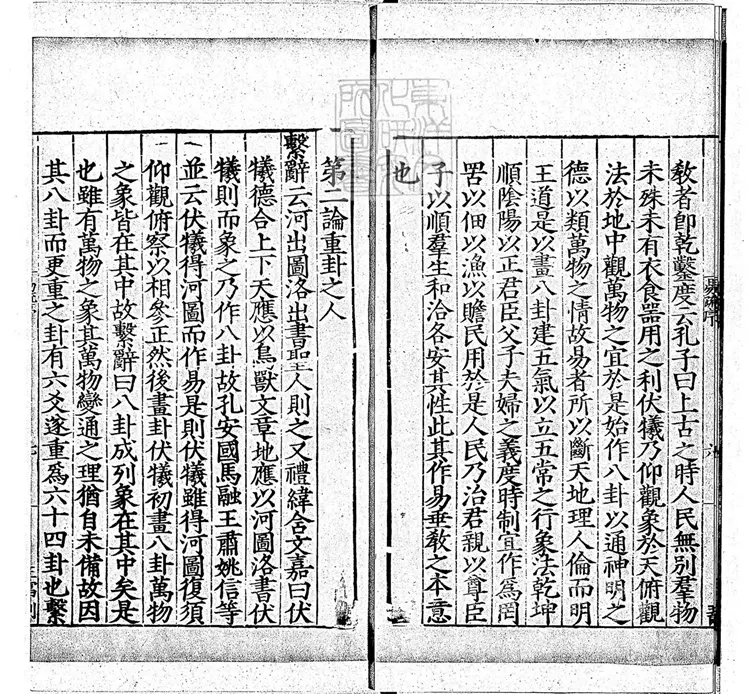 敎者卽乾鑿度云孔子曰上古之時人民無別羣物
未殊未有衣食器用之利伏犧乃仰觀象於天俯觀
法於地中觀萬物之宜於是始作八卦以通神明之
德以類萬物之情故易者所以斷天地理人倫而明
王道是以畫八卦建五氣以立五常之行象法乾坤
順陰陽以正君臣父子夫婦之義度時制宜作爲罔
罟以佃以漁以贍民用於是人民乃治君親以尊臣
子以順羣生和洽各安其性此其作易垂敎之本意
也
第二論重卦之人
繫辭云河出圖洛出書聖人則之又禮緯含文嘉曰伏
犧德合上下天應以鳥獸文章地應以河圖洛書伏
犧則而象之乃作八卦故孔安國馬融王肅姚信等
並云伏犧得河圖而作易是則伏犧雖得河圖復須
仰觀俯察以相參正然後畫卦伏犧初畫八卦萬物
之象皆在其中故繫辭曰八卦成列象在其中矣是
也雖有萬物之象其萬物變通之理猶自未備故因
其八卦而更重之卦有六爻遂重爲六十四卦也繫